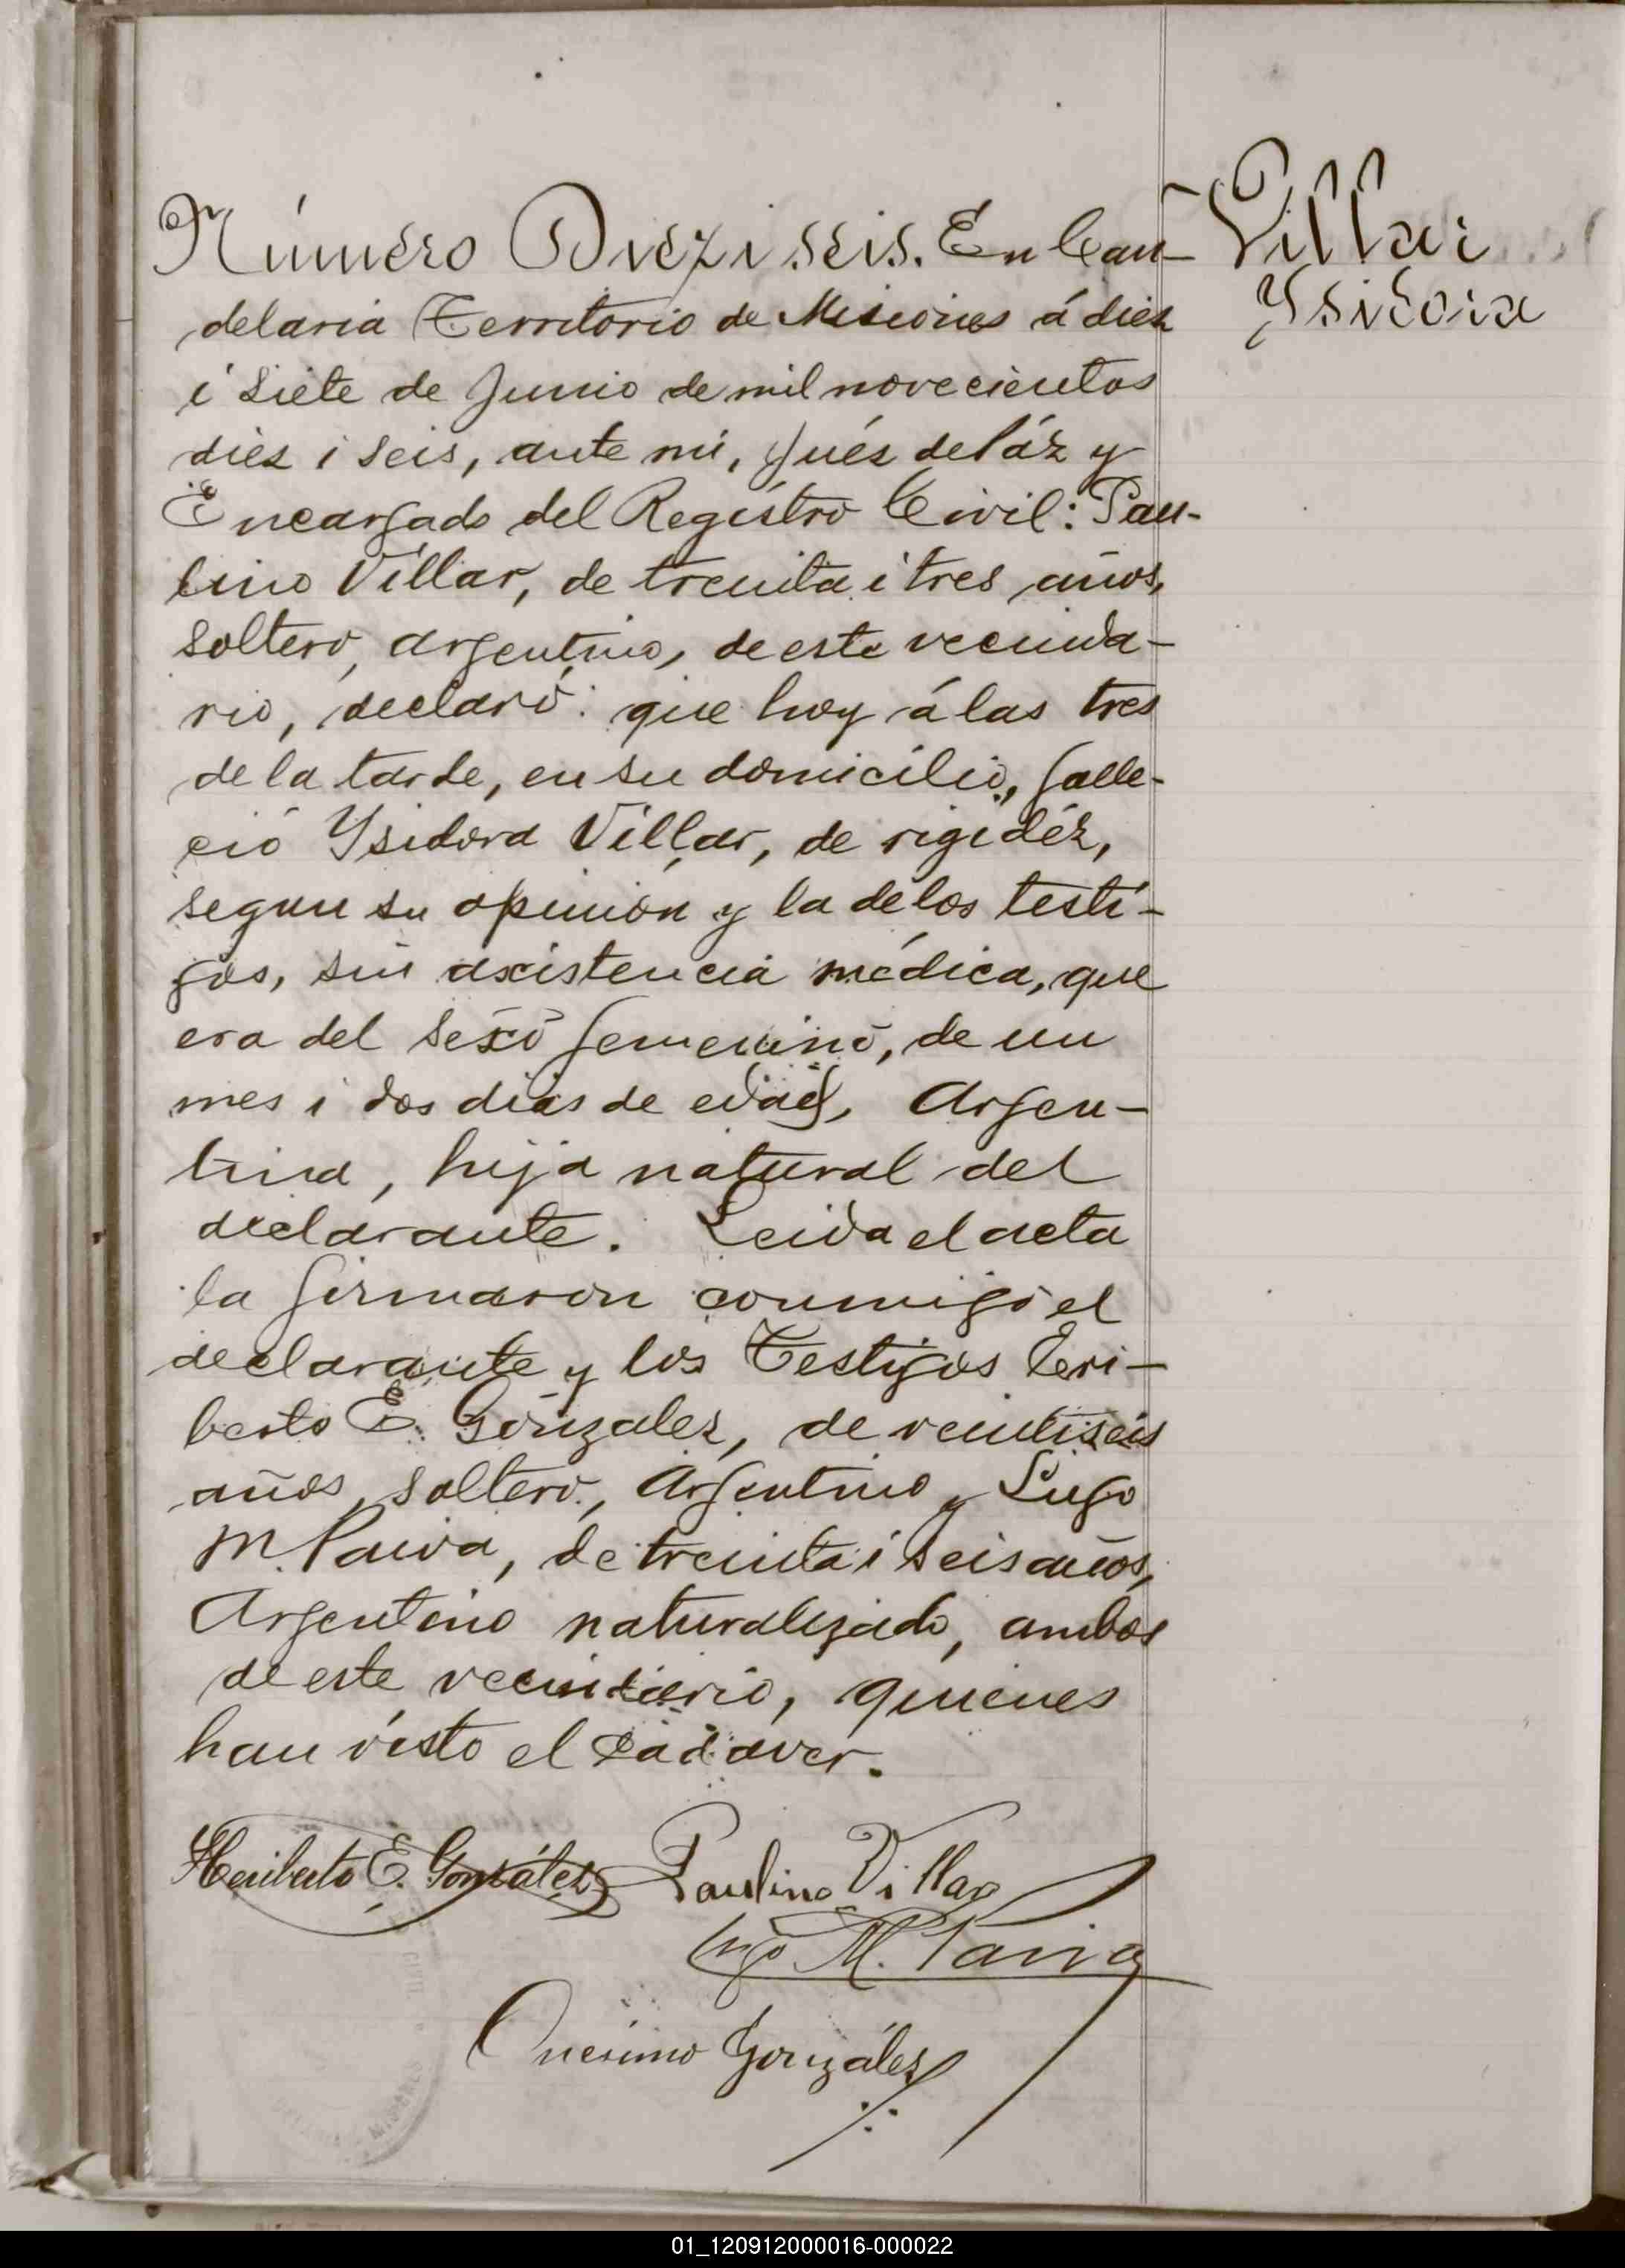 Número Diezi seis. En Can-
delaria Territorio de Misiones á diez
i siete de Junio de mil novecientos
diez i seis, ante mi, Jués de Páz y
Encargado del Registro Civil: Pau-
lino Villar, de treinta i tres años,
soltero, argentino, de este vecinda-
rio, declaró: que hoy á las tres
de la tarde, en su domicilio, falle-
ció Ysidora Villar, de rigidéz,
segun su opinión y la de los testi-
gos, sin asistencia médica, que
era del sexo femenino, de un
mes i dos dias de edad, Argen-
tina, hija natural del
declarante. Leida el acta
la firmaron conmigo el
declarante y los Testigos Eri-
berto E. Gonzalez, de veintiseis
años, soltero, Argentino y Lugo
M. Paiva, de treinta i seis años,
Argentino naturalizado, ambos
de este vecindario, quienes
han visto el cadaver.
Villar
Ysidora
Heriberto E. González Paulino Villar
Lugo M. Paiva
Onésimo González
01_120912000016-000022